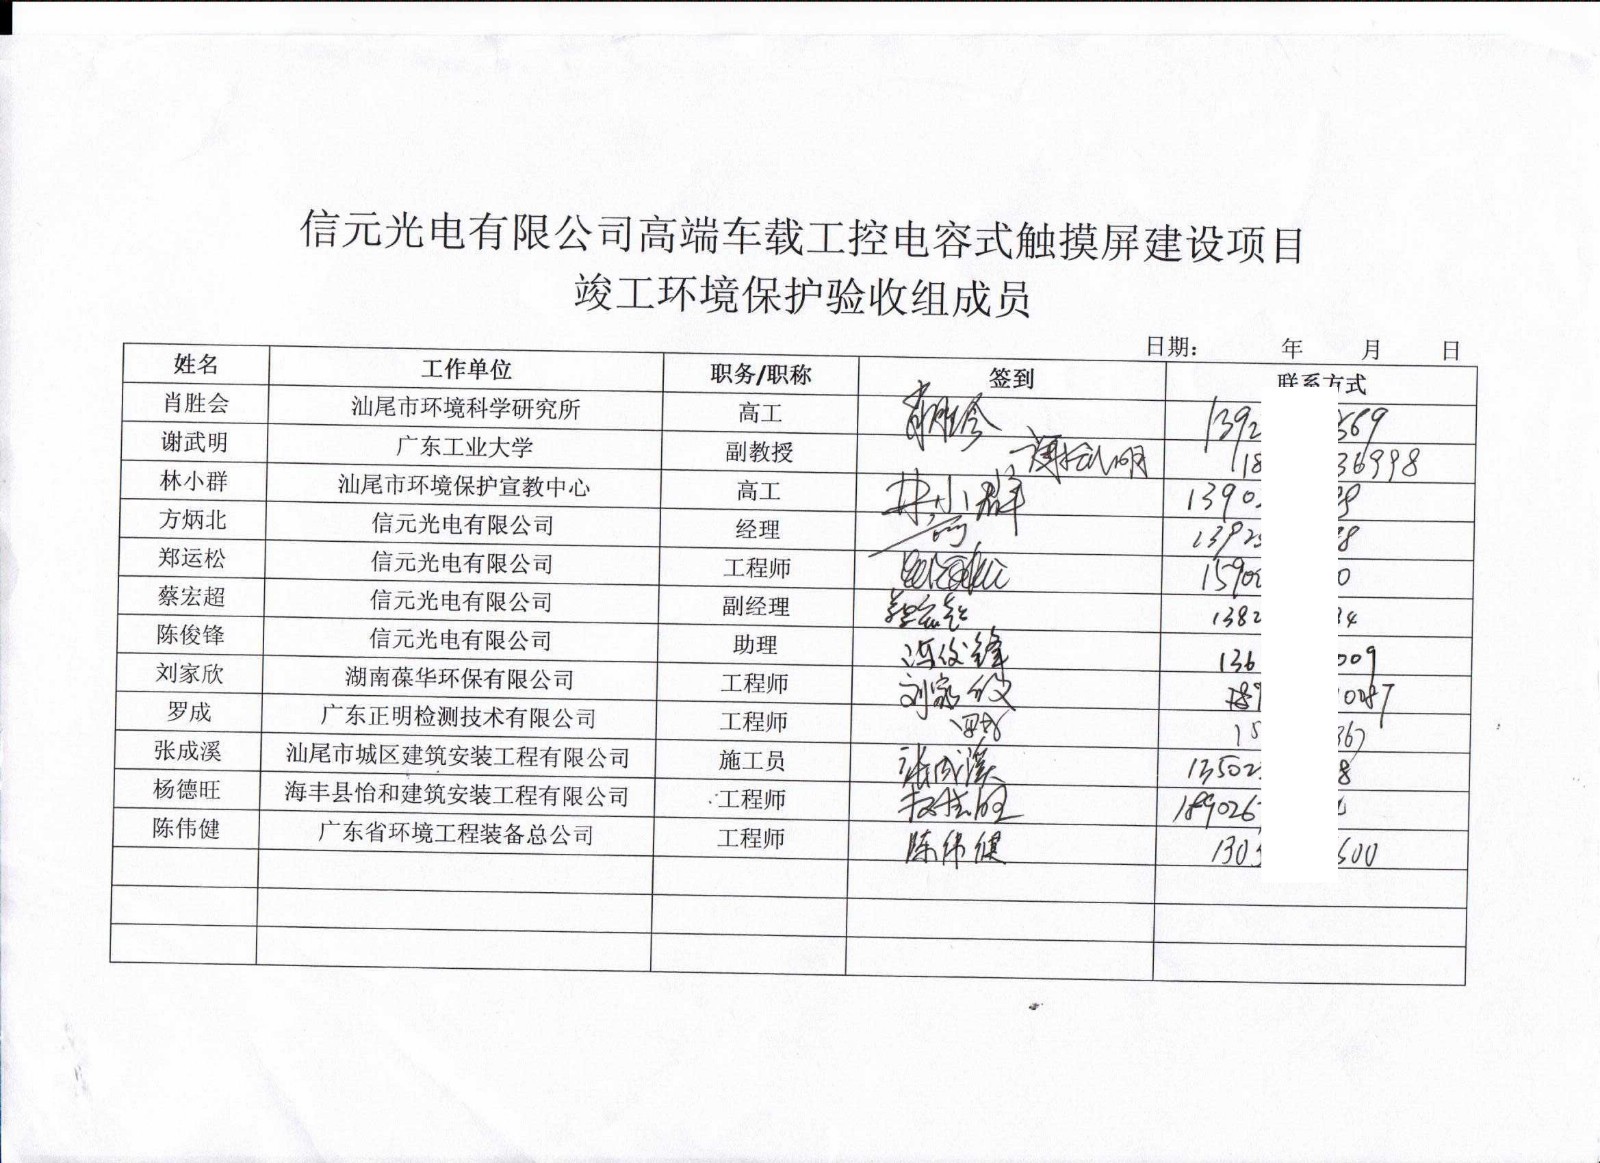 信元光电有限公司高端车载工控电容式触摸屏建设项目
竣工环境保护验收组成员
日期： 年 月 日
姓名 工作单位 职务/职称 签到 联系方式
肖胜会 汕尾市环境科学研究所 高工 肖胜会 1392 369
谢武明 广东工业大学 副教授 谢武明 118 36998
林小群 汕尾市环境保护宣教中心 高工 林小群 1390
方炳北 信元光电有限公司 经理 1392 8
郑运松 信元光电有限公司 工程师 1590 0
蔡宏超 信元光电有限公司 副经理 蔡宏超 1382 34
陈俊锋 信元光电有限公司 助理 陈俊锋 136 009
刘家欣 湖南葆华环保有限公司 工程师 刘家欣 189
罗成 广东正明检测技术有限公司 工程师 罗成 15 367
张成溪 汕尾市城区建筑安装工程有限公司 施工员 张成溪 13502 8
杨德旺 海丰县怡和建筑安装工程有限公司 工程师 杨德旺 189026
陈伟健 广东省环境工程装备总公司 工程师 陈伟健 130 600